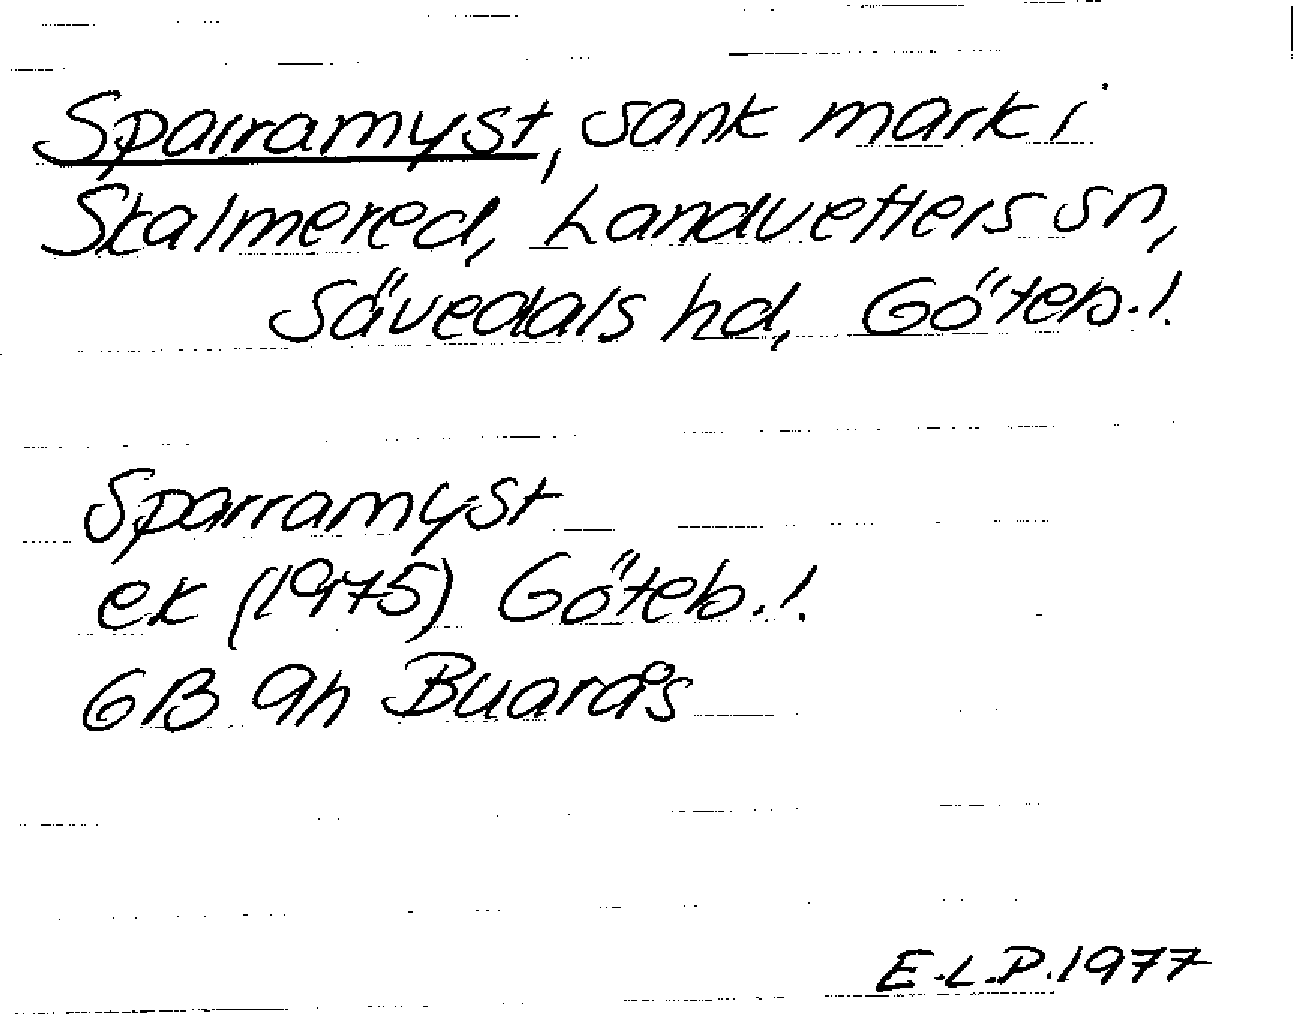 Sparramyst, sank mark i
Skalmered, Landvetters sn,
Sävedals hd, Göteb. l.
Sparramyst
ek (1975) Göteb. l.
6B 9h Buarås
E.L.P. 1977